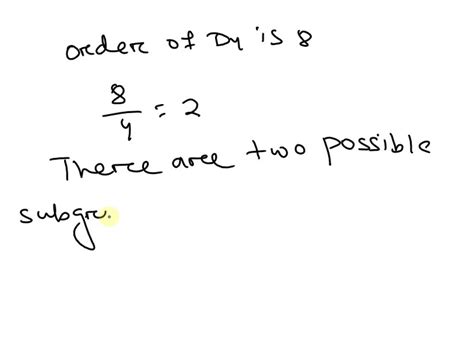 order of D4 is 8
8/4 = 2
There are two possible
subgr